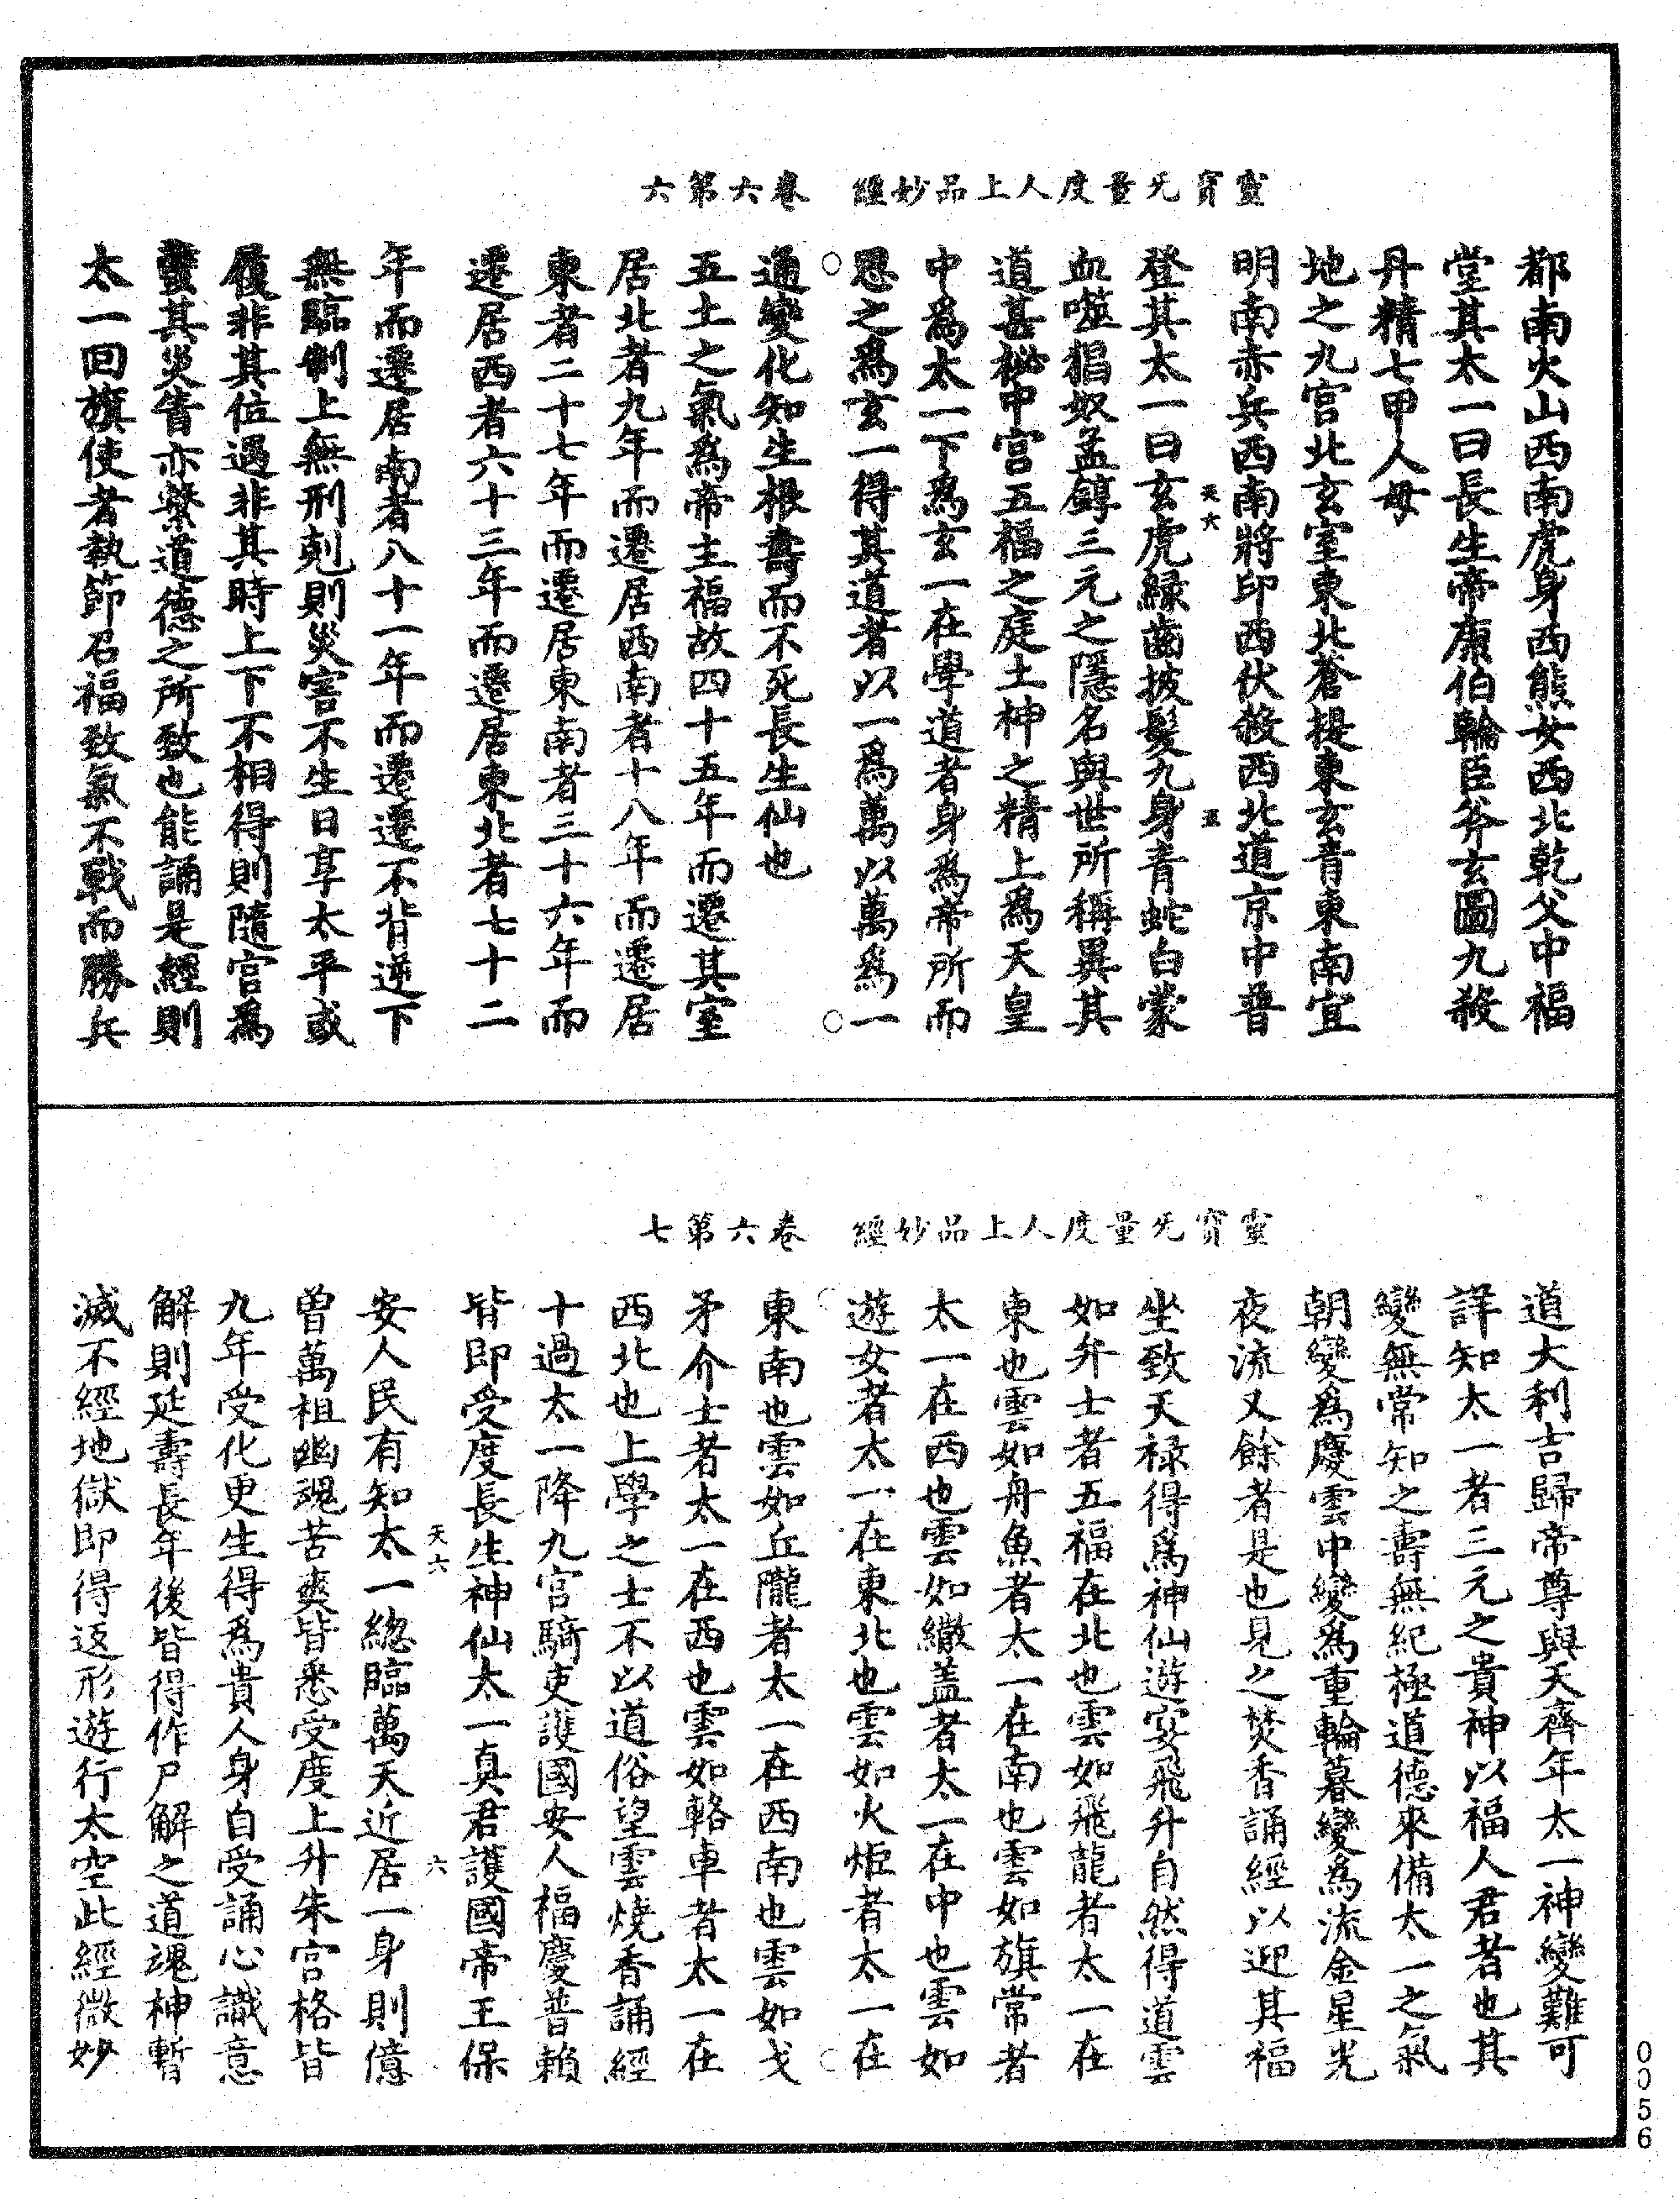 靈寶旡量度人上品妙經　卷六第六
都南火山西南虎身西熊女西北乾父中福
堂其太一曰長生帝康伯輪臣斧玄圖九殺
丹精七甲人母
地之九宮北玄室東北蒼提東玄青東南宜
明南赤兵西南將印西伏殺西北道京中普
天六　五
登其太一曰玄虎緑齒披髮九身青蛇白蒙
血噬猖奴孟錞三元之隱名與世所稱異其
道甚祕中宮五福之庭土神之精上爲天皇
中爲太一下爲玄一在學道者身爲帝所而
思之爲玄一得其道者以一爲萬以萬爲一
通變化知生根壽而不死長生仙也
五土之氣爲帝主福故四十五年而遷其室
居北者九年而遷居西南者十八年而遷居
東者二十七年而遷居東南者三十六年而
遷居西者六十三年而遷居東北者七十二
年而遷居南者八十一年而遷遷不背逆下
無臨制上無刑剋則災害不生日享太平或
履非其位遇非其時上下不相得則隨宮爲
其災眚亦繫道德之所致也能誦是經則
太一回旗使者執節召福致氣不戰而勝兵
靈寶旡量度人上品妙經　卷六第七
道大利吉歸帝尊與天齊年太一神變難可
詳知太一者三元之貴神以福人君者也其
變無常知之壽無紀極道德來備太一之氣
朝變爲慶雲中變爲重輪暮變爲流金星光
夜流又餘者是也見之焚香誦經以迎其福
坐致天禄得爲神仙遊宴飛升自然得道雲
如弁士者五福在北也雲如飛龍者太一在
東也雲如舟魚者太一在南也雲如旗常者
太一在西也雲如繖盖者太一在中也雲如
遊女者太一在東北也雲如火炬者太一在
東南也雲如丘隴者太一在西南也雲如戈
矛介士者太一在西也雲如輅車者太一在
西北也上學之士不以道俗望雲燒香誦經
十過太一降九宮騎吏護國安人福慶普賴
皆即受度長生神仙太一真君護國帝王保
天六　六
安人民有知太一總臨萬天近居一身則億
曾萬祖幽魂苦爽皆悉受度上升朱宮格皆
九年受化更生得爲貴人身自受誦心識意
解則延壽長年後皆得作尸解之道魂神暫
滅不經地獄即得返形遊行太空此經微妙
0056